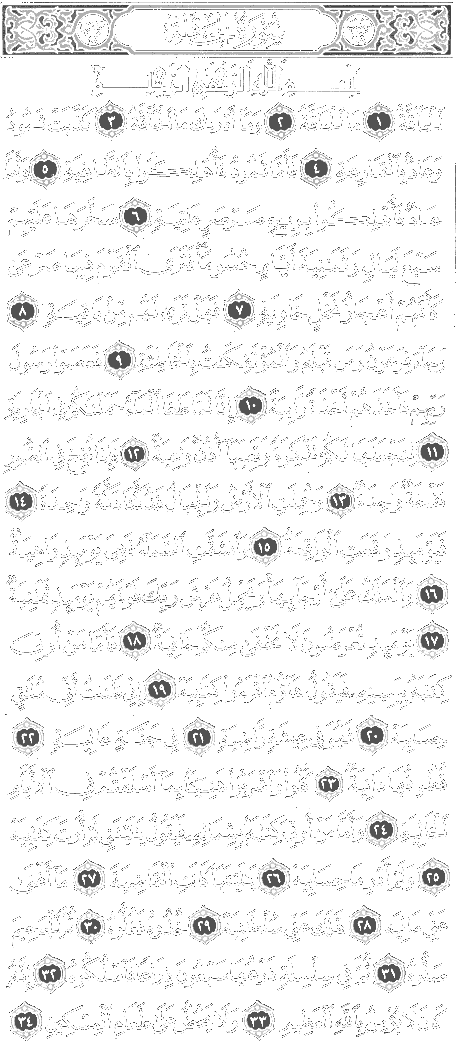 سُورَةُ الحَاقَّةِ
بِسْمِ ٱللَّهِ ٱلرَّحْمَٰنِ ٱلرَّحِيمِ
ٱلْحَآقَّةُ ١ مَا ٱلْحَآقَّةُ ٢ وَمَآ أَدْرَىٰكَ مَا ٱلْحَآقَّةُ ٣ كَذَّبَتْ ثَمُودُ
وَعَادٌۢ بِٱلْقَارِعَةِ ٤ فَأَمَّا ثَمُودُ فَأُهْلِكُوا۟ بِٱلطَّاغِيَةِ ٥ وَأَمَّا
عَادٌ فَأُهْلِكُوا۟ بِرِيحٍ صَرْصَرٍ عَاتِيَةٍ ٦ سَخَّرَهَا عَلَيْهِمْ
سَبْعَ لَيَالٍ وَثَمَٰنِيَةَ أَيَّامٍ حُسُومًا فَتَرَى ٱلْقَوْمَ فِيهَا صَرْعَىٰ
كَأَنَّهُمْ أَعْجَازُ نَخْلٍ خَاوِيَةٍ ٧ فَهَلْ تَرَىٰ لَهُم مِّنۢ بَاقِيَةٍ ٨
وَجَآءَ فِرْعَوْنُ وَمَن قَبْلَهُۥ وَٱلْمُؤْتَفِكَٰتُ بِٱلْخَاطِئَةِ ٩ فَعَصَوْا۟ رَسُولَ
رَبِّهِمْ فَأَخَذَهُمْ أَخْذَةً رَّابِيَةً ١٠ إِنَّا لَمَّا طَغَا ٱلْمَآءُ حَمَلْنَٰكُمْ فِى ٱلْجَارِيَةِ
١١ لِنَجْعَلَهَا لَكُمْ تَذْكِرَةً وَتَعِيَهَآ أُذُنٌ وَٰعِيَةٌ ١٢ فَإِذَا نُفِخَ فِى ٱلصُّورِ
نَفْخَةٌ وَٰحِدَةٌ ١٣ وَحُمِلَتِ ٱلْأَرْضُ وَٱلْجِبَالُ فَدُكَّتَا دَكَّةً وَٰحِدَةً ١٤
فَيَوْمَئِذٍ وَقَعَتِ ٱلْوَاقِعَةُ ١٥ وَٱنشَقَّتِ ٱلسَّمَآءُ فَهِىَ يَوْمَئِذٍ وَاهِيَةٌ
١٦ وَٱلْمَلَكُ عَلَىٰٓ أَرْجَآئِهَا وَيَحْمِلُ عَرْشَ رَبِّكَ فَوْقَهُمْ يَوْمَئِذٍ ثَمَٰنِيَةٌ
١٧ يَوْمَئِذٍ تُعْرَضُونَ لَا تَخْفَىٰ مِنكُمْ خَافِيَةٌ ١٨ فَأَمَّا مَنْ أُوتِىَ
كِتَٰبَهُۥ بِيَمِينِهِۦ فَيَقُولُ هَآؤُمُ ٱقْرَءُوا۟ كِتَٰبِيَهْ ١٩ إِنِّى ظَنَنتُ أَنِّى مُلَٰقٍ
حِسَابِيَهْ ٢٠ فَهُوَ فِى عِيشَةٍ رَّاضِيَةٍ ٢١ فِى جَنَّةٍ عَالِيَةٍ ٢٢
قُطُوفُهَا دَانِيَةٌ ٢٣ كُلُوا۟ وَٱشْرَبُوا۟ هَنِيٓـًٔۢا بِمَآ أَسْلَفْتُمْ فِى ٱلْأَيَّامِ
ٱلْخَالِيَةِ ٢٤ وَأَمَّا مَنْ أُوتِىَ كِتَٰبَهُۥ بِشِمَالِهِۦ فَيَقُولُ يَٰلَيْتَنِى لَمْ أُوتَ كِتَٰبِيَهْ
٢٥ وَلَمْ أَدْرِ مَا حِسَابِيَهْ ٢٦ يَٰلَيْتَهَا كَانَتِ ٱلْقَاضِيَةَ ٢٧ مَآ أَغْنَىٰ
عَنِّى مَالِيَهْ ٢٨ هَلَكَ عَنِّى سُلْطَٰنِيَهْ ٢٩ خُذُوهُ فَغُلُّوهُ ٣٠ ثُمَّ ٱلْجَحِيمَ
صَلُّوهُ ٣١ ثُمَّ فِى سِلْسِلَةٍ ذَرْعُهَا سَبْعُونَ ذِرَاعًا فَٱسْلُكُوهُ ٣٢ إِنَّهُۥ
كَانَ لَا يُؤْمِنُ بِٱللَّهِ ٱلْعَظِيمِ ٣٣ وَلَا يَحُضُّ عَلَىٰ طَعَامِ ٱلْمِسْكِينِ ٣٤